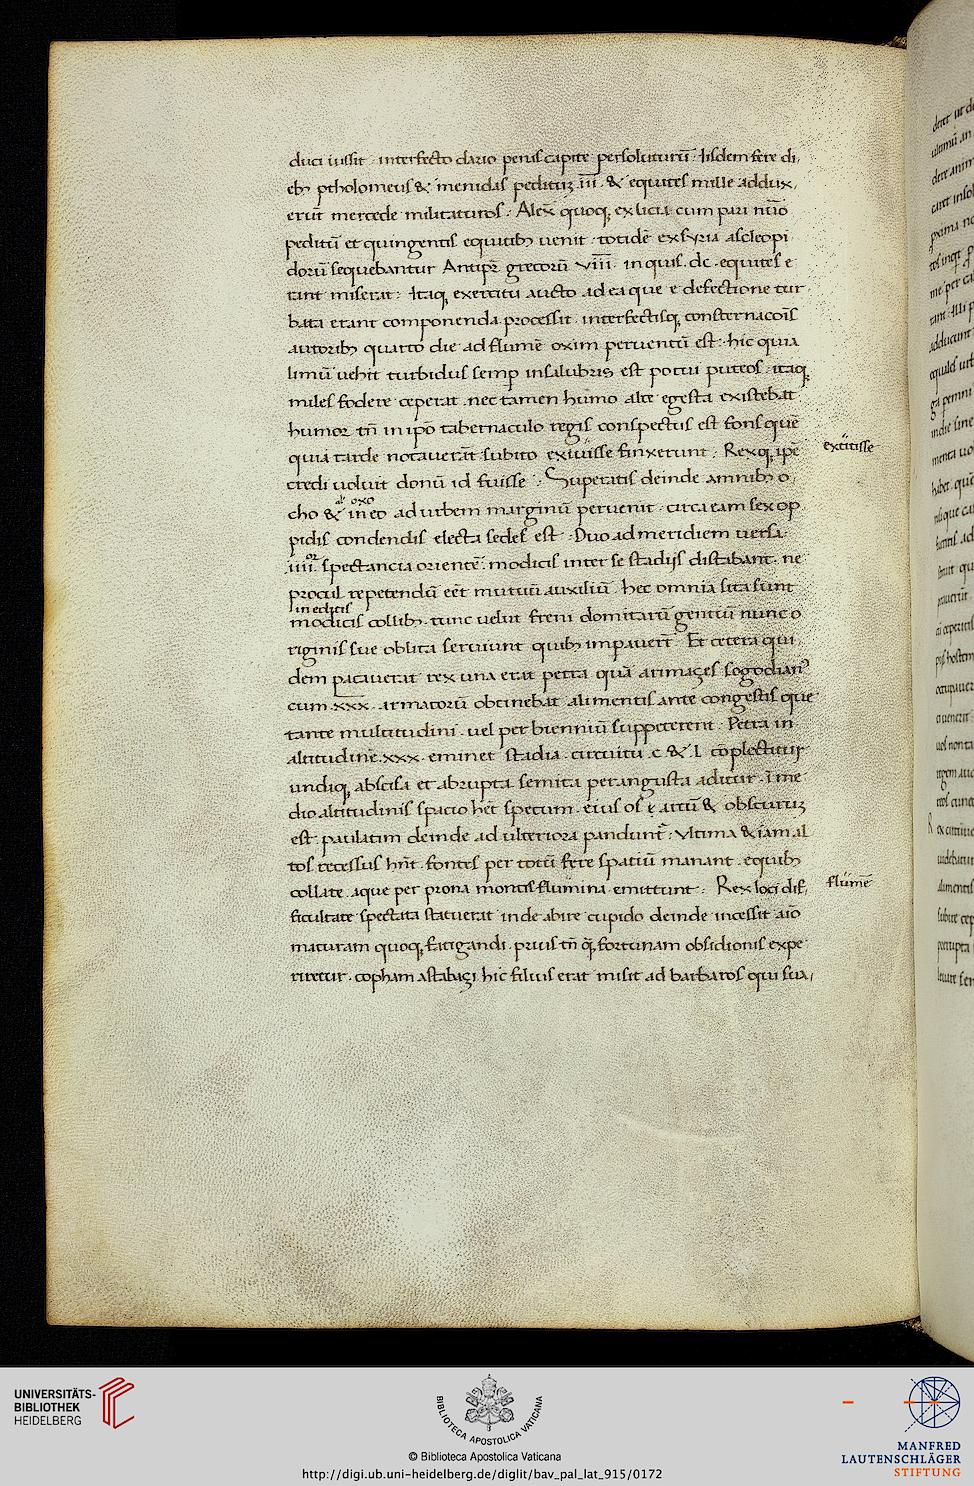 duci iussit · interfecto dario penis capite persoluturū · Iisdem fere di
eb; ptholomeus & menidas peditū; .iii. & equites mille addux
erūt mercede militaturos · Alex̄ quoq; ex licia cum pari nūo
peditū et quingentis equitib; uenit · totidē ex syria asclepi
dorū sequebantur Antip̄r grecorū .viii. in quis .dc. equites e
rant miserat : Itaq; exercitu aucto ad ea que e defectione tur
bata erant componenda processit · interfectisq; consternacōis
autorib; quarto die ad flumē oxim peruentū est · hic quia
limū uehit turbidus semp insalubris est potui puteos · itaq;
miles fodere ceperat · nec tamen humo alte egesta existebat
humor tn̄ in ipō tabernaculo regis conspectus est fons quē
quia tarde notauerāt subito exiuisse finxerunt · Rexq; ipē
extitisse
credi uoluit donū id fuisse · Superatis deinde amnib; o
al' oxo
cho & in eo ad urbem marginū peruenit · circa eam sex op
pidis condendis electa sedes est · Duo ad meridiem uersa
.iiii.or spectancia orientē · modicis inter se stadijs distabant · ne
procul repetendū eēt mutuū auxiliū · hec omnia sita sunt
in editis
modicis collib; · tunc uelut freni domitarū gentiū nunc o
riginis sue oblita seruiunt quib; impauer̄t · Et cetera qui
dem pacauerat rex una erat petra quā arimazes sogdian'
cum .xxx. armatorū obtinebat alimentis ante congestis que
tante multitudini · uel per bienniū suppeterent · Petra in
altitudinē .xxx. eminet stadia · circuitu .c. & .l. cōplectitur
undiq; abscisa et abrupta semita perangusta aditur · I me
dio altitudinis spacio het specum · eius os & artū & obscurū;
est · paulatim deinde ad ulteriora pandunt̄ · Vltima & iam al
tos recessus hn̄t · fontes per totū fere spatiū manant · e quib;
collate aque per prona montis flumina emittunt · Rex loci dif
flumē
ficultate spectata statuerat inde abire cupido deinde incessit aīo
maturam quoq; fatigandi · prius tn̄ q̄ fortunam obsidionis expe
riretur · copham astabazi hic filius erat misit ad barbaros qui sua
UNIVERSITÄTS-
BIBLIOTHEK
HEIDELBERG
BIBLIOTECA APOSTOLICA VATICANA
© Biblioteca Apostolica Vaticana
http://digi.ub.uni-heidelberg.de/diglit/bav_pal_lat_915/0172
MANFRED
LAUTENSCHLÄGER
STIFTUNG